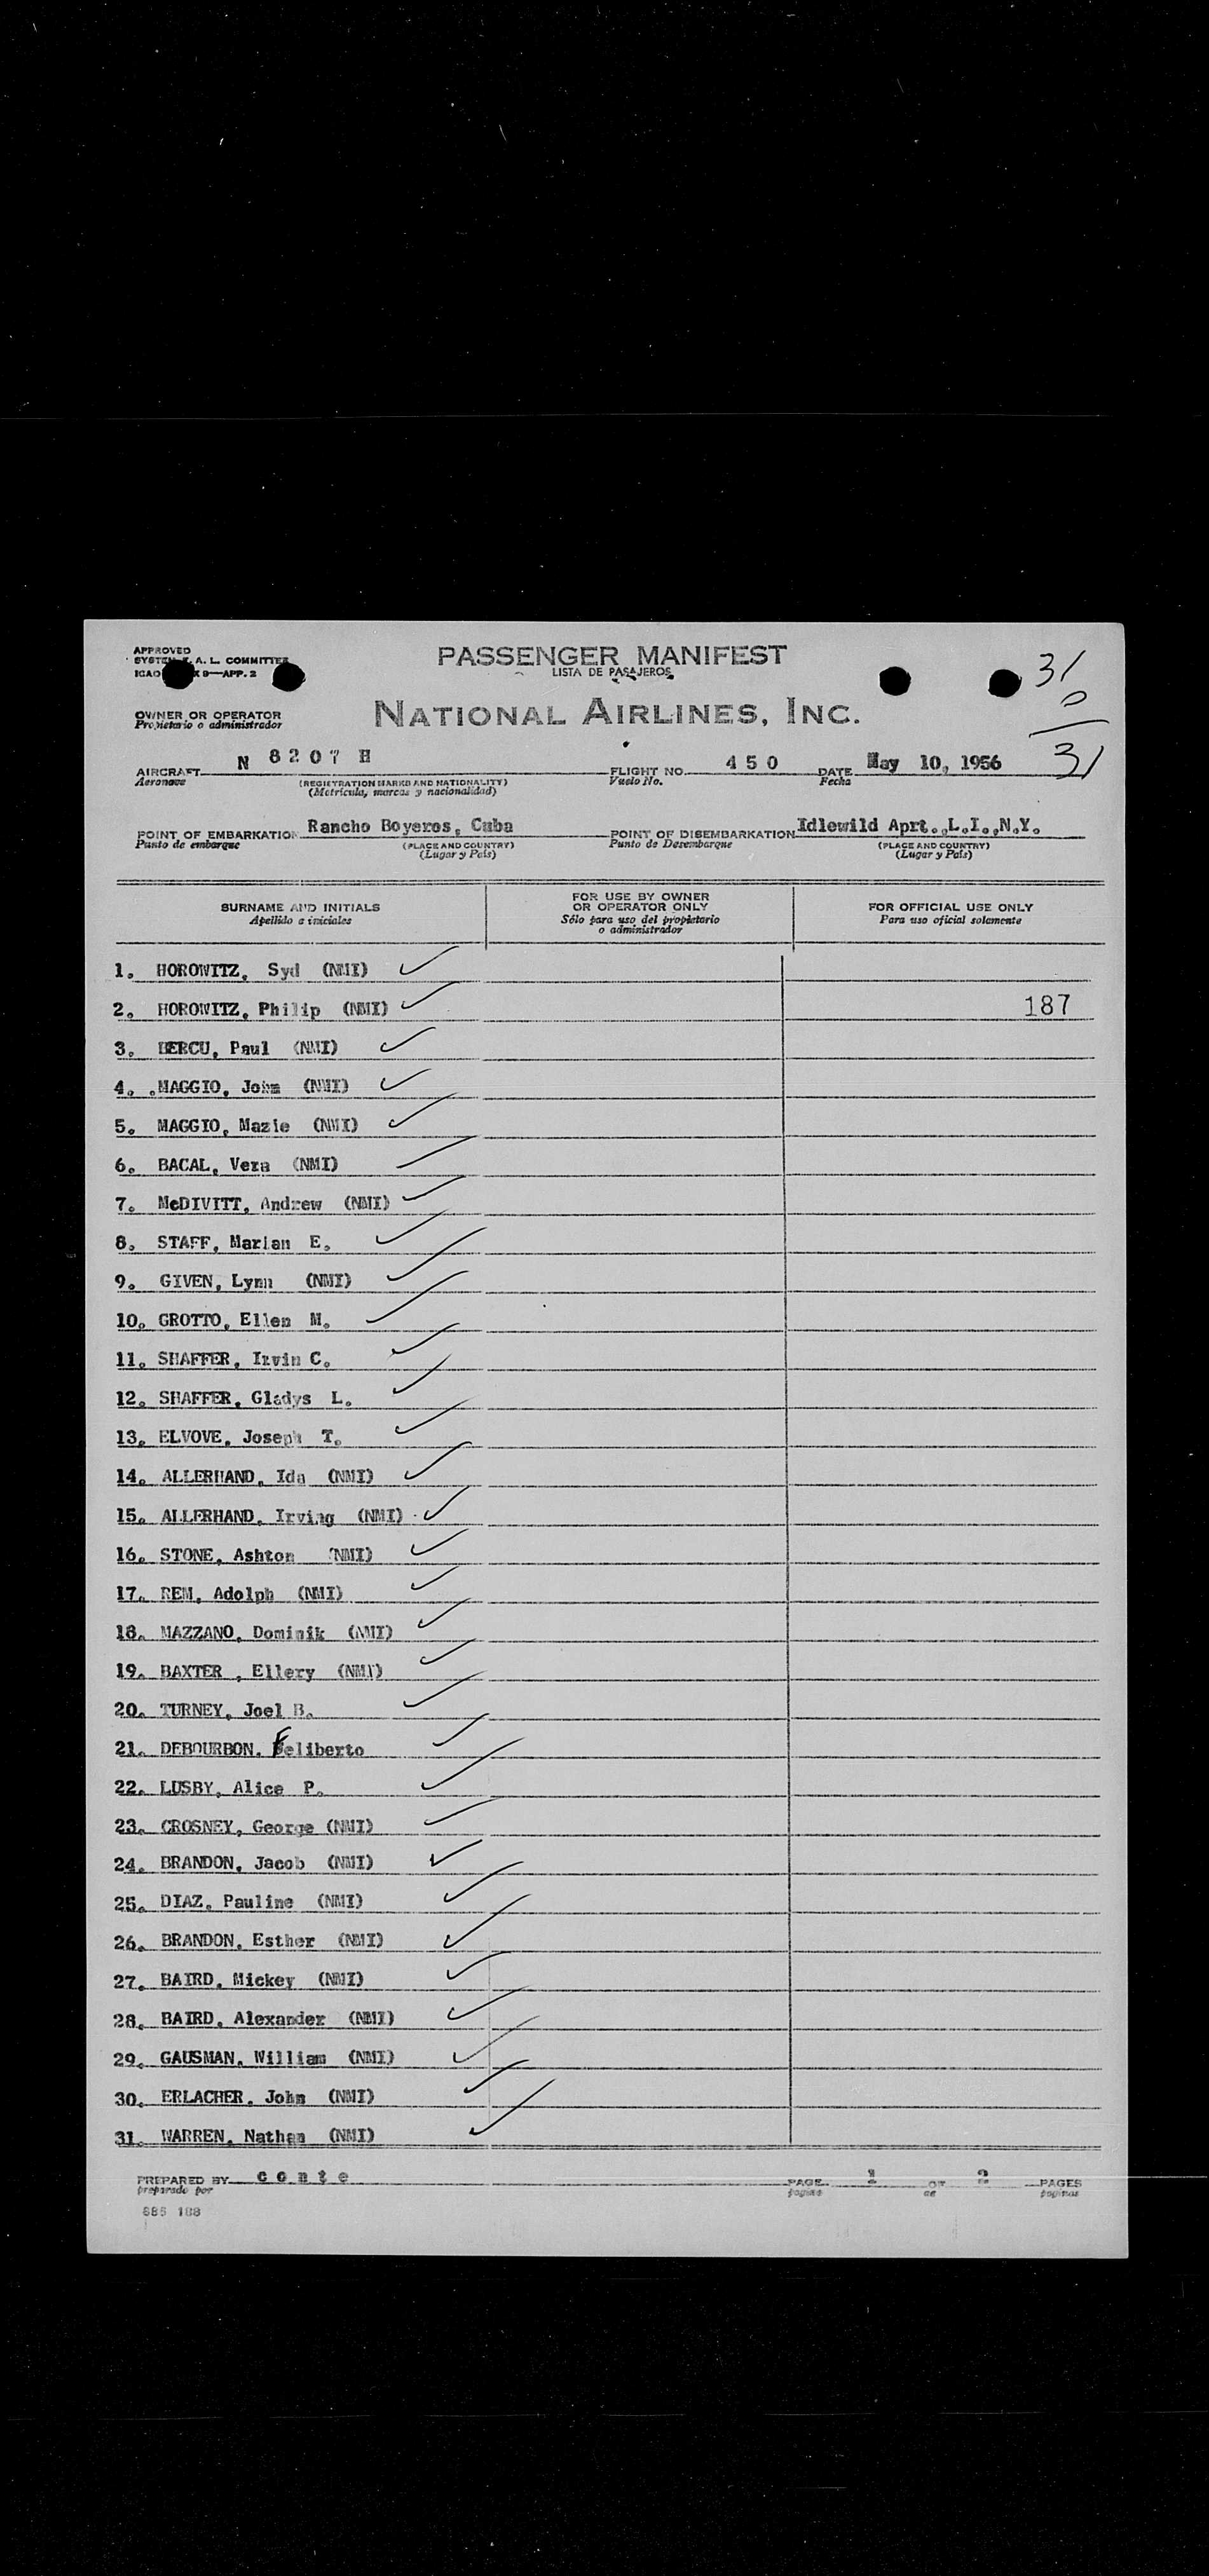 APPROVED
SYSTEM F. A. L. COMMITTEE
ICAO X 9—APP. 2
PASSENGER MANIFEST
LISTA DE PASAJEROS
31
0
31
OWNER OR OPERATOR
Propietario o administrador
NATIONAL AIRLINES, INC.
AIRCRAFT N 8207 H FLIGHT NO. 450 DATE May 10, 1956
Aeronave (REGISTRATION MARKS AND NATIONALITY) Vuelo No. Fecha
(Matrícula, marcas y nacionalidad)
POINT OF EMBARKATION Rancho Boyeros, Cuba POINT OF DISEMBARKATION Idlewild Aprt.,L.I.,N.Y.
Punto de embarque (PLACE AND COUNTRY) Punto de Desembarque (PLACE AND COUNTRY)
(Lugar y País) (Lugar y País)
SURNAME AND INITIALS
Apellido e iniciales
FOR USE BY OWNER
OR OPERATOR ONLY
Sólo para uso del propietario
o administrador
FOR OFFICIAL USE ONLY
Para uso oficial solamente
1. HOROWITZ, Syd (NMI)
2. HOROWITZ, Philip (NMI) 187
3. BERCU, Paul (NMI)
4. MAGGIO, John (NMI)
5. MAGGIO, Mazie (NMI)
6. BACAL, Vera (NMI)
7. McDIVITT, Andrew (NMI)
8. STAFF, Marian E.
9. GIVEN, Lynn (NMI)
10. GROTTO, Ellen M.
11. SHAFFER, Irvin C.
12. SHAFFER, Gladys L.
13. ELVOVE, Joseph T.
14. ALLERHAND, Ida (NMI)
15. ALLERHAND, Irving (NMI)
16. STONE, Ashton (NMI)
17. REM, Adolph (NMI)
18. MAZZANO, Dominik (NMI)
19. BAXTER , Ellery (NMI)
20. TURNEY, Joel B.
21. DEBOURBON, Feliberto
22. LUSBY, Alice P.
23. CROSNEY, George (NMI)
24. BRANDON, Jacob (NMI)
25. DIAZ, Pauline (NMI)
26. BRANDON, Esther (NMI)
27. BAIRD, Mickey (NMI)
28. BAIRD, Alexander (NMI)
29. GAUSMAN, William (NMI)
30. ERLACHER, John (NMI)
31. WARREN, Nathan (NMI)
PREPARED BY conte PAGE 1 OF 2 PAGES
preparado por página de páginas
685 188